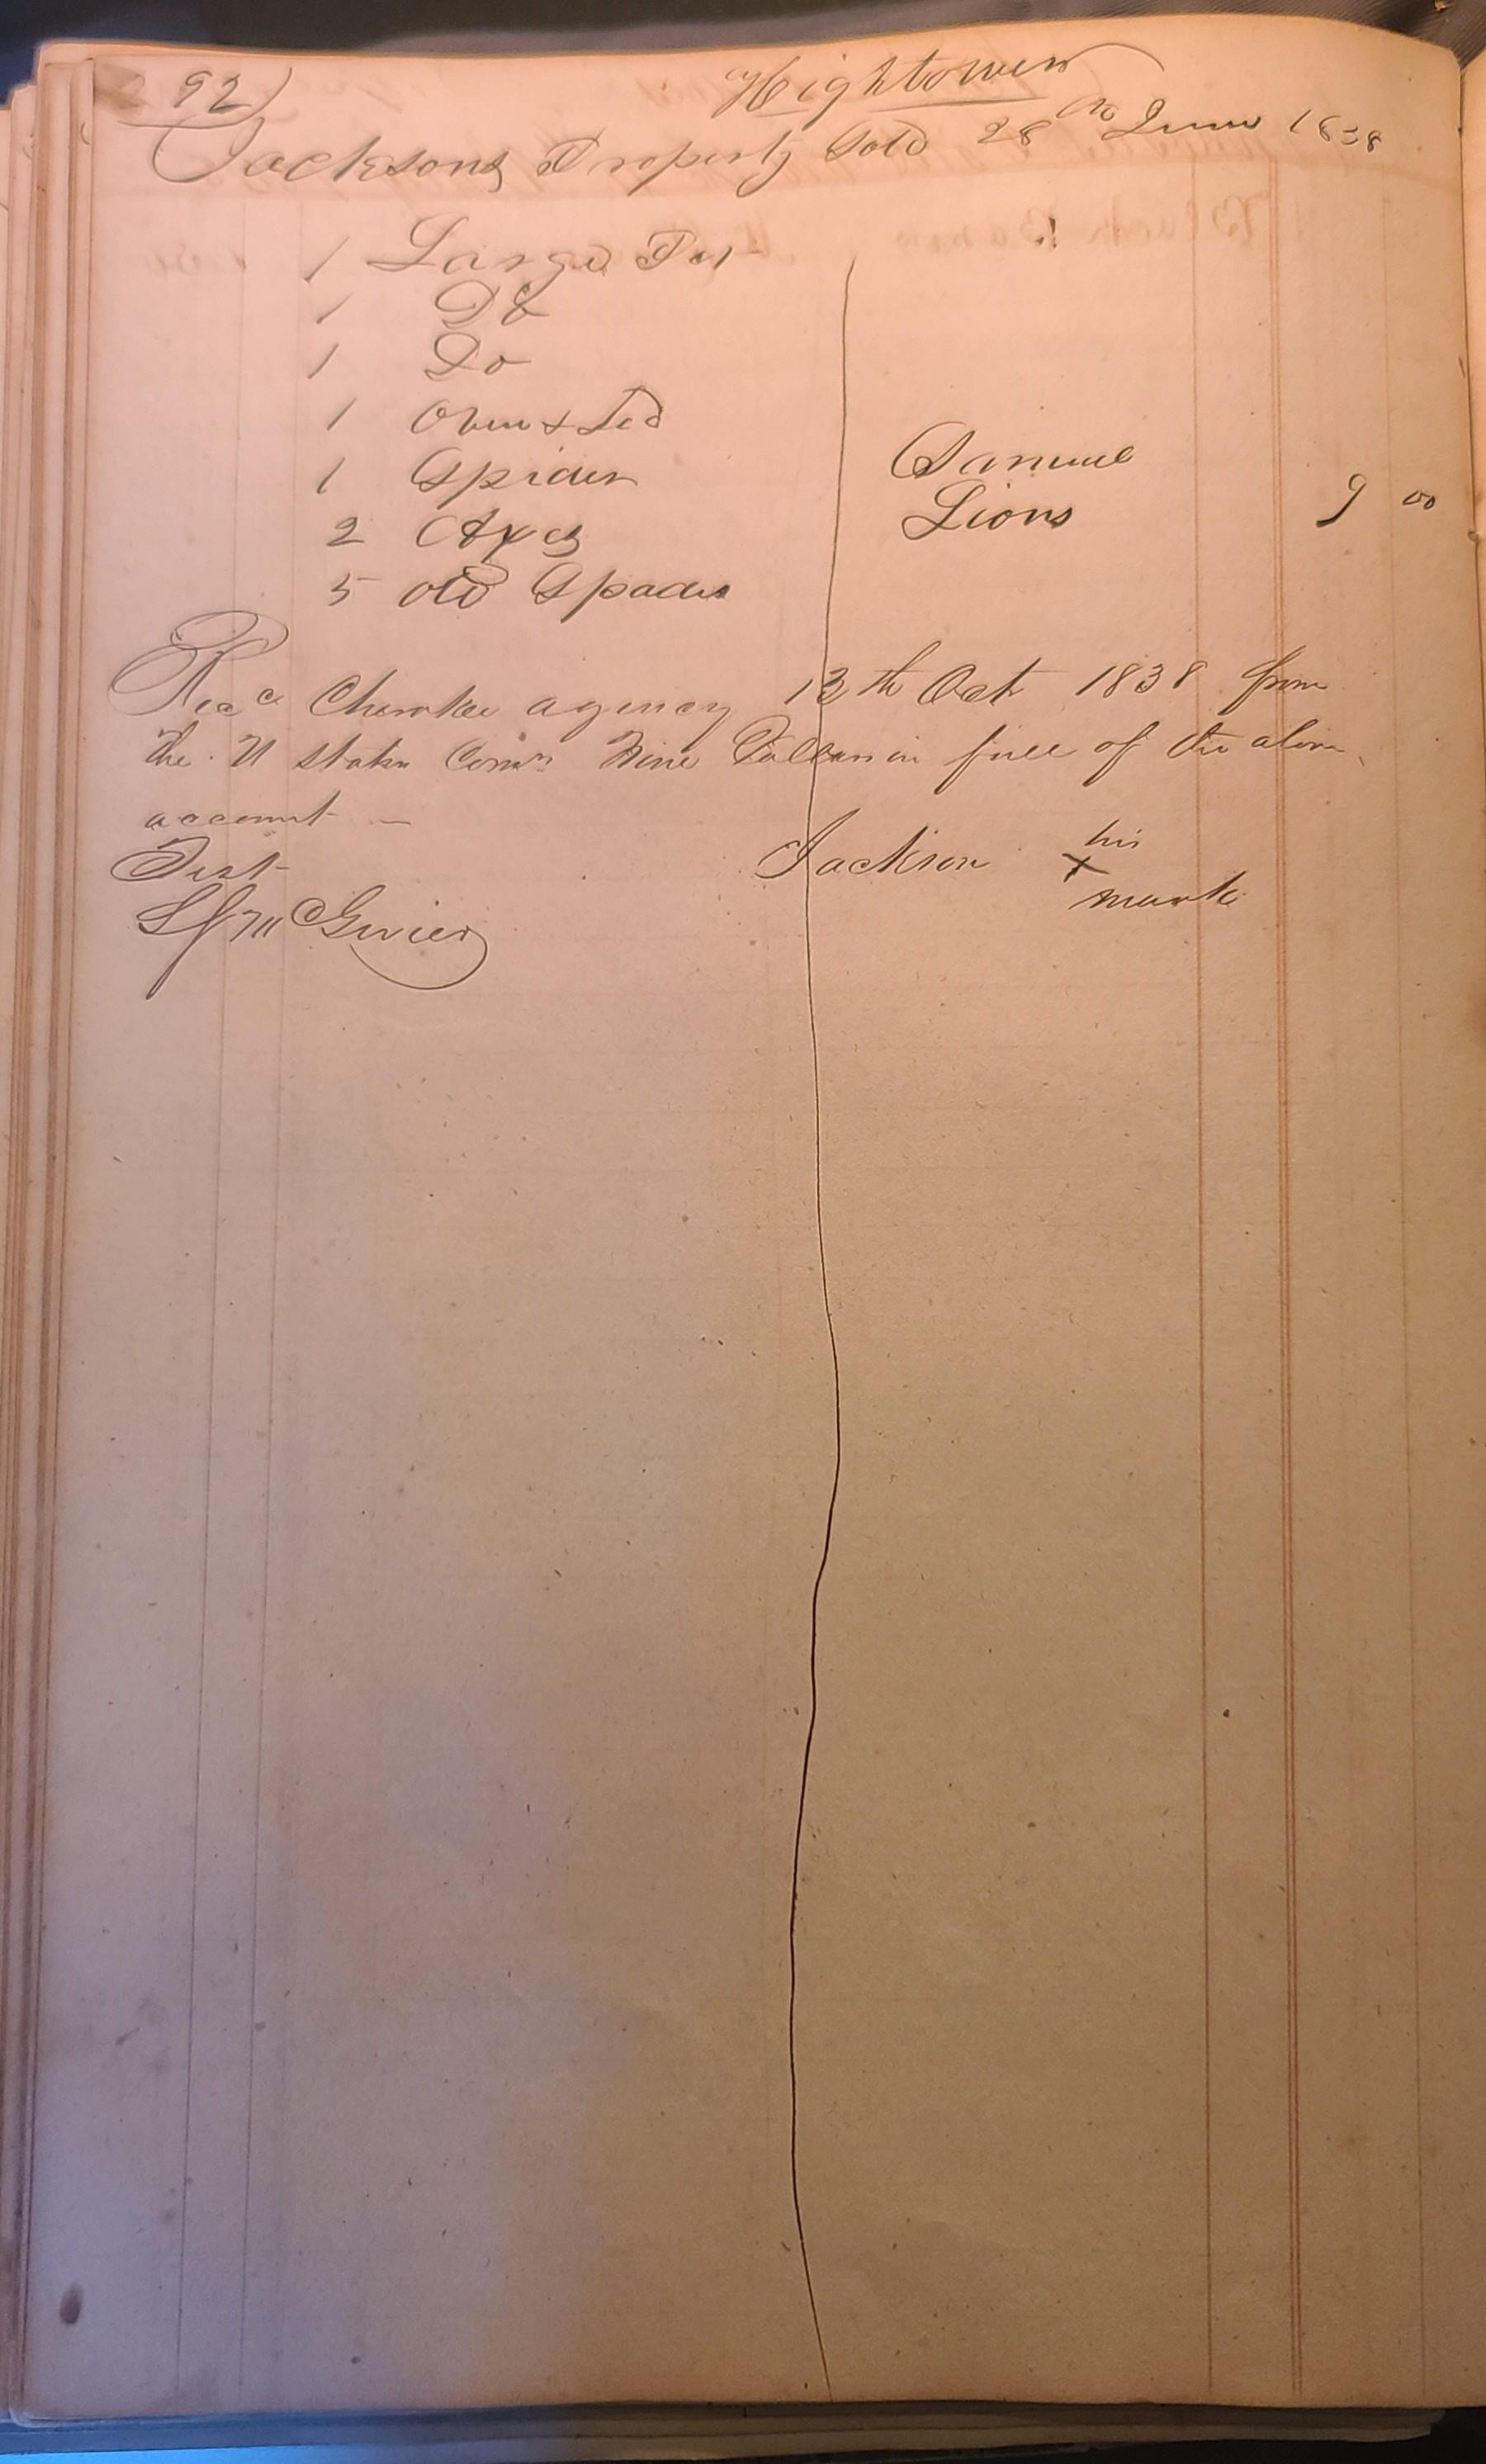 92)
Hightower
Jacksons Property Sold 28th June 1838
1 Large Pot
1 Do
1 Do
1 Oven & Led
1 Spider
2 Axes
5 old Spades
Samuel
Lions
9 00
Recd Cherokee agency 13th Oct 1838 from
the U States Comrs Nine Dollars in full of the above
account —
Test
Jackson his
x
mark